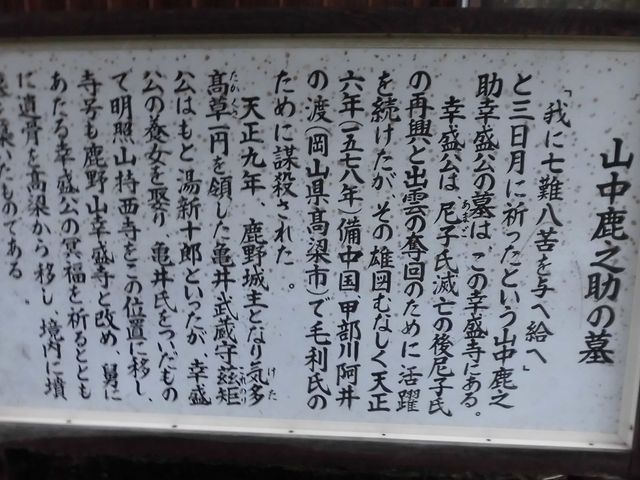 山中鹿之助の墓
「我に七難八苦を与へ給へ」
と三日月に祈ったという山中鹿之
助幸盛公の墓は、この幸盛寺にある。
幸盛公は尼子氏滅亡の後尼子氏
あまご
の再興と出雲の奪回のために活躍
を続けたが その雄図むなしく天正
六年(一五七八年)備中国 甲部川阿井
の渡(岡山県高梁市)で毛利氏の
ために謀殺された。
天正九年、鹿野城主となり気多
けた
高草一円を領した亀井武蔵守茲矩
たかくさ
これのり
公はもと湯新十郎といったが、幸盛
公の養女を娶り 亀井氏をついだもの
で明照山持西寺をこの位置に移し、
寺号も鹿野山幸盛寺と改め、舅に
あたる幸盛公の冥福を祈るととも
に遺骨を高梁から移し、境内に墳
墓を築いたものである。